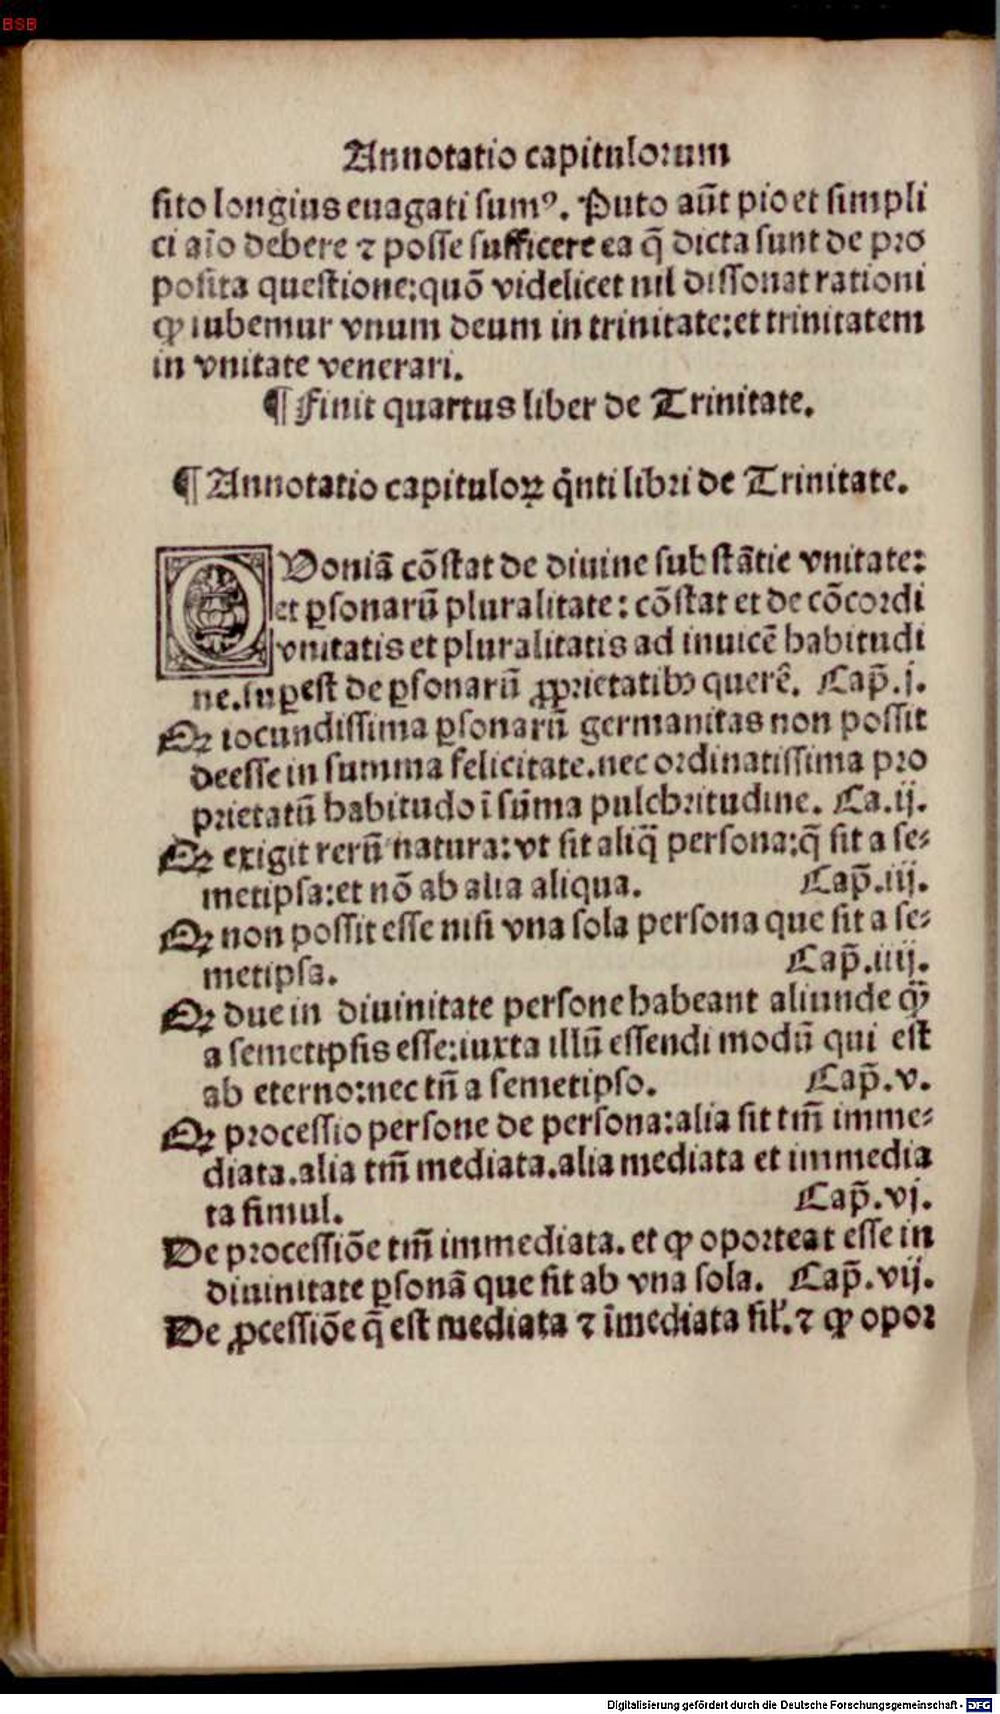 BSB
Annotatio capitulorum
sito longius euagati sumꝰ. Puto aūt pio et simpli
ci aīo debere ⁊ posse sufficere ea q̄ dicta sunt de pro
posita questione:quō videlicet nil dissonat rationi
ꝙ iubemur vnum deum in trinitate:et trinitatem
in vnitate venerari.
¶ Finit quartus liber de Trinitate.
¶ Annotatio capituloꝝ q̇nti libri de Trinitate.
QVoniā cōstat de diuine substātie vnitate:
et ꝑsonarū pluralitate: cōstat et de cōcordi
vnitatis et pluralitatis ad inuicē habitudi
ne.suꝑest de ꝑsonarū ꝓprietatibꝰ querē. Cap̄.j.
Qꝫ iocundissima ꝑsonarū germanitas non possit
deesse in summa felicitate.nec ordinatissima pro
prietatū habitudo ī sūma pulchritudine. Ca.ij.
Qꝫ exigit rerū natura:vt sit aliq̄ persona:q̄ sit a se⸗
metipsa:et nō ab alia aliqua. Cap̄.iij.
Qꝫ non possit esse nisi vna sola persona que sit a se⸗
metipsa. Cap̄.iiij.
Qꝫ due in diuinitate persone habeant aliunde ꝙ̄
a semetipsis esse:iuxta illū essendi modū qui est
ab eterno:nec tn̄ a semetipso. Cap̄.v.
Qꝫ processio persone de persona:alia sit tm̄ imme⸗
diata.alia tm̄ mediata.alia mediata et immedia
ta simul. Cap̄.vj.
De processiōe tm̄ immediata. et ꝙ oporteat esse in
diuinitate ꝑsonā que sit ab vna sola. Cap̄.vij.
De ꝓcessiōe q̄ est mediata ⁊ īmediata sil'.⁊ ꝙ opor
Digitalisierung gefördert durch die Deutsche Forschungsgemeinschaft - DFG